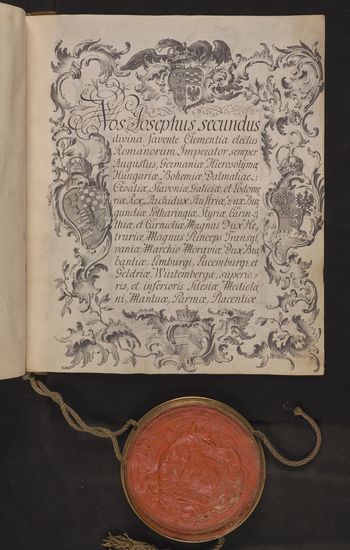 Nos Josephus secundus
divina favente Clementia electus
Romanorum Imperator semper
Augustus, Germaniæ, Hierosolymæ
Hungariæ, Bohemiæ, Dalmatiæ,
Croatiæ, Slavoniæ, Galiciæ, et Lodome
riæ Rex, Archidux Austriæ, Dux Bur
gundiæ, Lotharingiæ, Styriæ, Carin
thiæ, et Carnioliæ, Magnus Dux He
truriæ, Magnus Princeps Transyl
vaniæ, Marchio Moraviæ, Dux Bra
bantiæ, Limburgi, Lucemburgi, et
Geldriæ, Würtembergæ, superio
ris, et inferioris Silesiæ, Mediola
ni, Mantuæ, Parmæ, Placentiæ